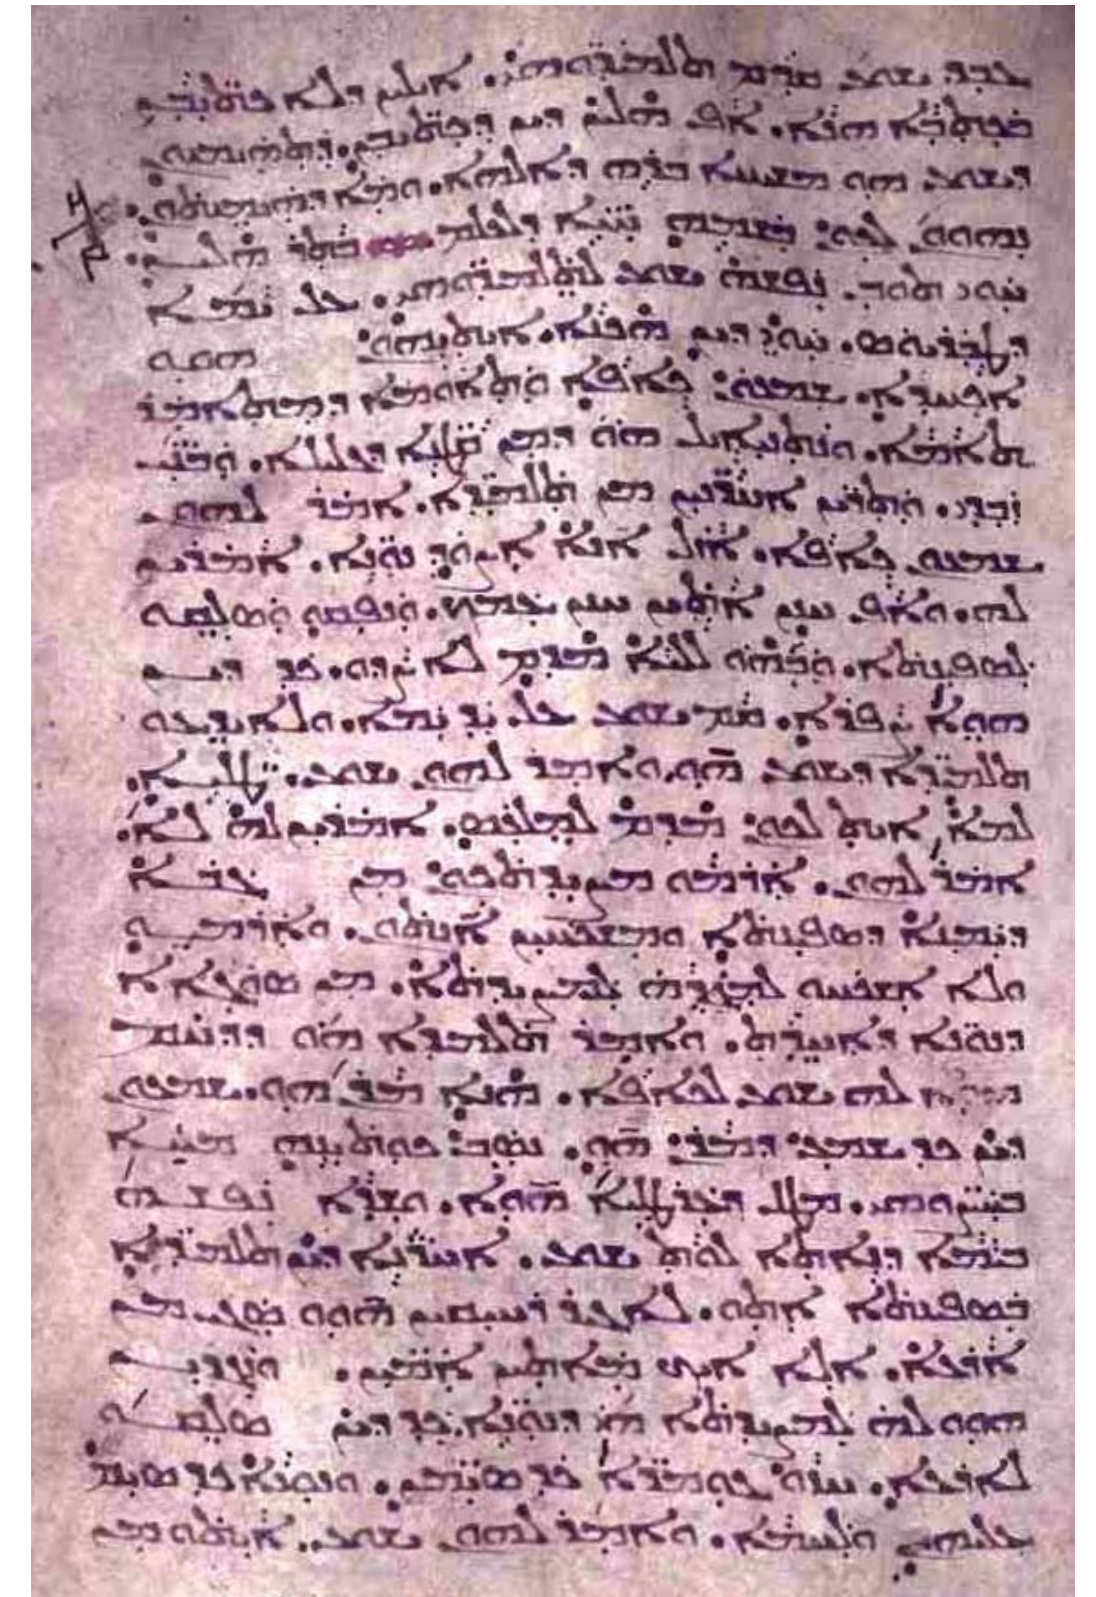 ܥܒܕ ܝܫܘܥ ܩܕܡ ܬܠܡܝܕܘ̈ܗܝ. ܐܝܠܝܢ ܕܠܐ ܟܬܝ̈ܒܢ
ܒܟܬܒܐ ܗܢܐ. ܐܦ ܗܠܝܢ ܕܝܢ ܕܟܬܝ̈ܒܢ. ܕܬܗܝܡܢܘܢ
ܕܝܫܘܥ ܗܘ ܡܫܝܚܐ ܒܪܗ ܕܐܠܗܐ. ܘܡܐ ܕܗܝܡܢܬܘܢ.
ܢܗܘܘܢ ܠܟܘܢ ܒܫܡܗ ܚܝ̈ܐ ܕܠܥܠܡ ܒܬܪ ܗܠܝܢ.
ܚܘܝ ܬܘܒ. ܢܦܫܗ ܝܫܘܥ ܠܬܠܡܝܕܘ̈ܗܝ. ܥܠ ܝܡܐ
ܕܛܒܪܝܘܣ. ܚܘܝ ܕܝܢ ܗܟܢܐ. ܐܝܬܝܗܘܢ ܗܘܘ
ܐܟܚܕܐ. ܫܡܥܘܢ ܟܐܦܐ ܘܬܐܘܡܐ ܕܡܬܐܡܪ
ܬܐܡܐ. ܘܢܬܢܐܝܠ ܗܘ ܕܡܢ ܩܛܢܐ ܕܓܠܝܠܐ. ܘܒܢ̈ܝ
ܙܒܕܝ. ܘܬܪܝܢ ܐܚܪ̈ܢܝܢ ܡܢ ܬܠܡܝܕ̈ܐ. ܐܡܪ ܠܗܘܢ
ܫܡܥܘܢ ܟܐܦܐ. ܐܙܠ ܐܢܐ ܐܨܘܕ ܢܘ̈ܢܐ. ܐܡܪܝܢ
ܠܗ. ܘܐܦ ܚܢܢ ܐܬܝܢ ܚܢܢ ܥܡܟ. ܘܢܦܩܘ ܘܣܠܩܘ
ܠܣܦܝܢܬܐ. ܘܒܗܘ ܠܠܝܐ ܡܕܡ ܠܐ ܨܕܘ. ܟܕ ܕܝܢ
ܗܘܐ ܨܦܪܐ. ܩܡ ܝܫܘܥ ܥܠ ܝܕ ܝܡܐ. ܘܠܐ ܝܕܥܘ
ܬܠܡܝܕ̈ܐ ܕܝܫܘܥ ܗܘ. ܘܐܡܪ ܠܗܘܢ ܝܫܘܥ. ܛܠܝ̈ܐ.
ܠܡܐ ܐܝܬ ܠܟܘܢ ܡܕܡ ܠܡܠܥܣ. ܐܡܪܝܢ ܠܗ ܠܐ.
ܐܡܪ ܠܗܘܢ. ܐܪܡܘ ܡܨܝܕܬܟܘܢ ܡܢ ܓܒܐ
ܕܝܡܝܢܐ ܕܣܦܝܢܬܐ ܘܡܫܟܚܝܢ ܐܢܬܘܢ. ܘܐܪܡܝܘ
ܘܠܐ ܐܫܟܚܘ ܠܡܓܪܗ ܠܡܨܝܕܬܐ. ܡܢ ܣܘܓܐܐ
ܕܢܘ̈ܢܐ ܕܐܚܕܬ. ܘܐܡܪ ܬܠܡܝܕܐ ܗܘ ܕܪܚܡ
ܗܘܐ ܠܗ ܝܫܘܥ ܠܟܐܦܐ. ܗܢܐ ܡܪܢ ܗܘ. ܫܡܥܘܢ
ܕܝܢ ܟܕ ܫܡܥ ܕܡܪܢ ܗܘ. ܢܣܒ ܟܘܬܝܢܗ ܡܚܐ
ܒܚܨ̈ܘܗܝ. ܡܛܠ ܕܥܪܛܠܝܐ ܗܘܐ. ܘܫܕܐ ܢܦܫܗ
ܒܝܡܐ ܕܢܐܬܐ ܠܘܬ ܝܫܘܥ. ܐܚܪ̈ܢܐ ܕܝܢ ܬܠܡܝܕ̈ܐ
ܒܣܦܝܢܬܐ ܐܬܘ. ܠܐ ܓܝܪ ܪܚܝܩܝܢ ܗܘܘ ܣܓܝ ܡܢ
ܐܪܥܐ. ܐܠܐ ܐܝܟ ܡܐܬܝܢ ܐܡܝ̈ܢ. ܘܢܓܕܝܢ
ܗܘܘ ܠܗ ܠܡܨܝܕܬܐ ܗܝ ܕܢܘ̈ܢܐ. ܟܕ ܕܝܢ ܣܠܩܘ
ܠܐܪܥܐ. ܚܙܘ ܓܘܡܪ̈ܐ ܟܕ ܣܝܡ̈ܢ. ܘܢܘܢܐ ܟܕ ܣܝܡ
ܥܠܝܗܝܢ ܘܠܚܡܐ. ܘܐܡܪ ܠܗܘܢ ܝܫܘܥ. ܐܝܬܘ ܡܢ